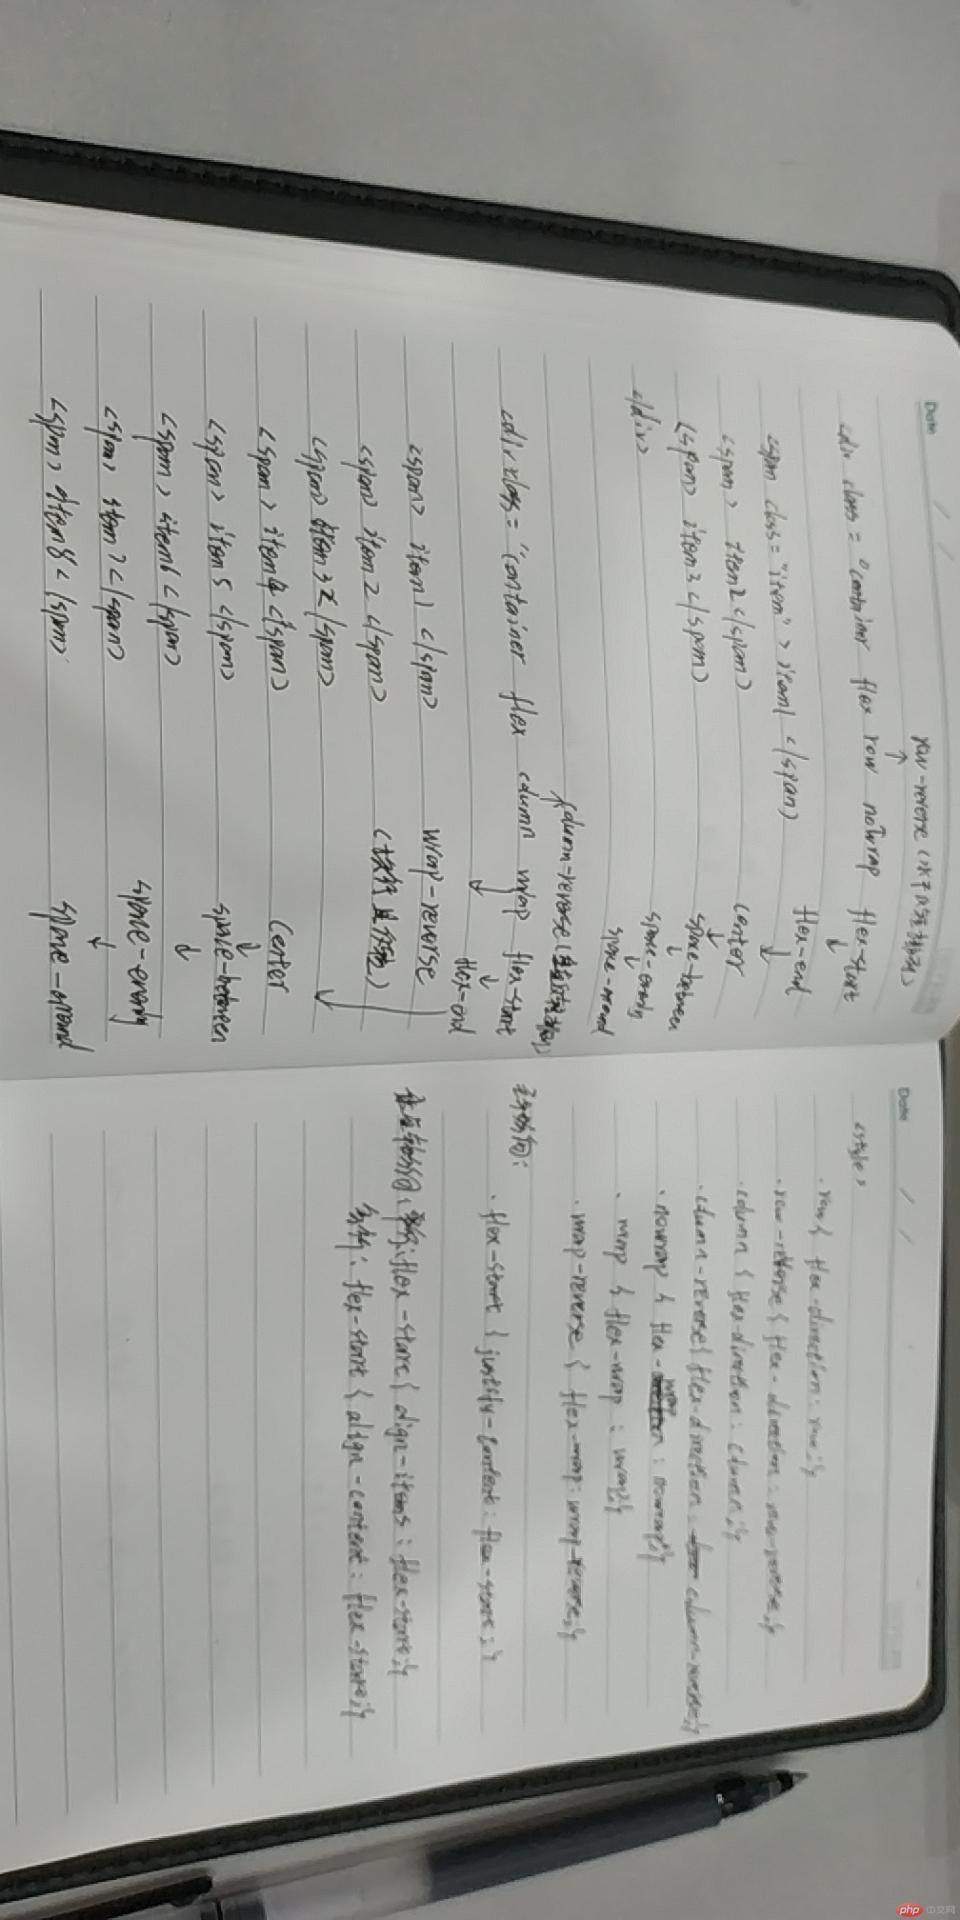 Date
row-reverse (水平反转排列)
<div class="container flex row nowrap flex-start
<span class="item">item1</span> flex-end
<span>item2</span> center
<span>item3</span> space-between
</div> space-evenly
space-around
column-reverse
<div class="container flex column wrap flex-start
<span>item1</span> wrap-reverse flex-end
<span>item2</span>
<span>item3</span>
<span>item4</span> center
<span>item5</span> space-between
<span>item6</span> space-evenly
<span>item7</span>
<span>item8</span> space-around
Date
<style>
.row{flex-direction:row;}
.row-reverse{flex-direction:row-reverse;}
.column{flex-direction:column;}
.column-reverse{flex-direction:column-reverse;}
.nowrap{flex-wrap:nowrap;}
.wrap{flex-wrap:wrap;}
.wrap-reverse{flex-wrap:wrap-reverse;}
主轴方向:
.flex-start{justify-content:flex-start;}
flex-start{align-items:flex-start;}
多行:flex-start{align-content:flex-start;}
php 中文网